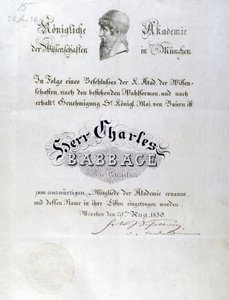 15
Königliche Akademie
der Wissenschaften in München
In Folge eines Beschlusses der K. Akad. der Wissen-
schaften, nach den bestehenden Wahlformen, und nach
erhalt. Genehmigung Sr. Königl. Maj. von Baiern ist
Herr Charles
BABBAGE
zum auswärtigen Mitgliede der Akademie ernannt
und dessen Name in ihre Listen eingetragen worden.
München den Aug. 1830.